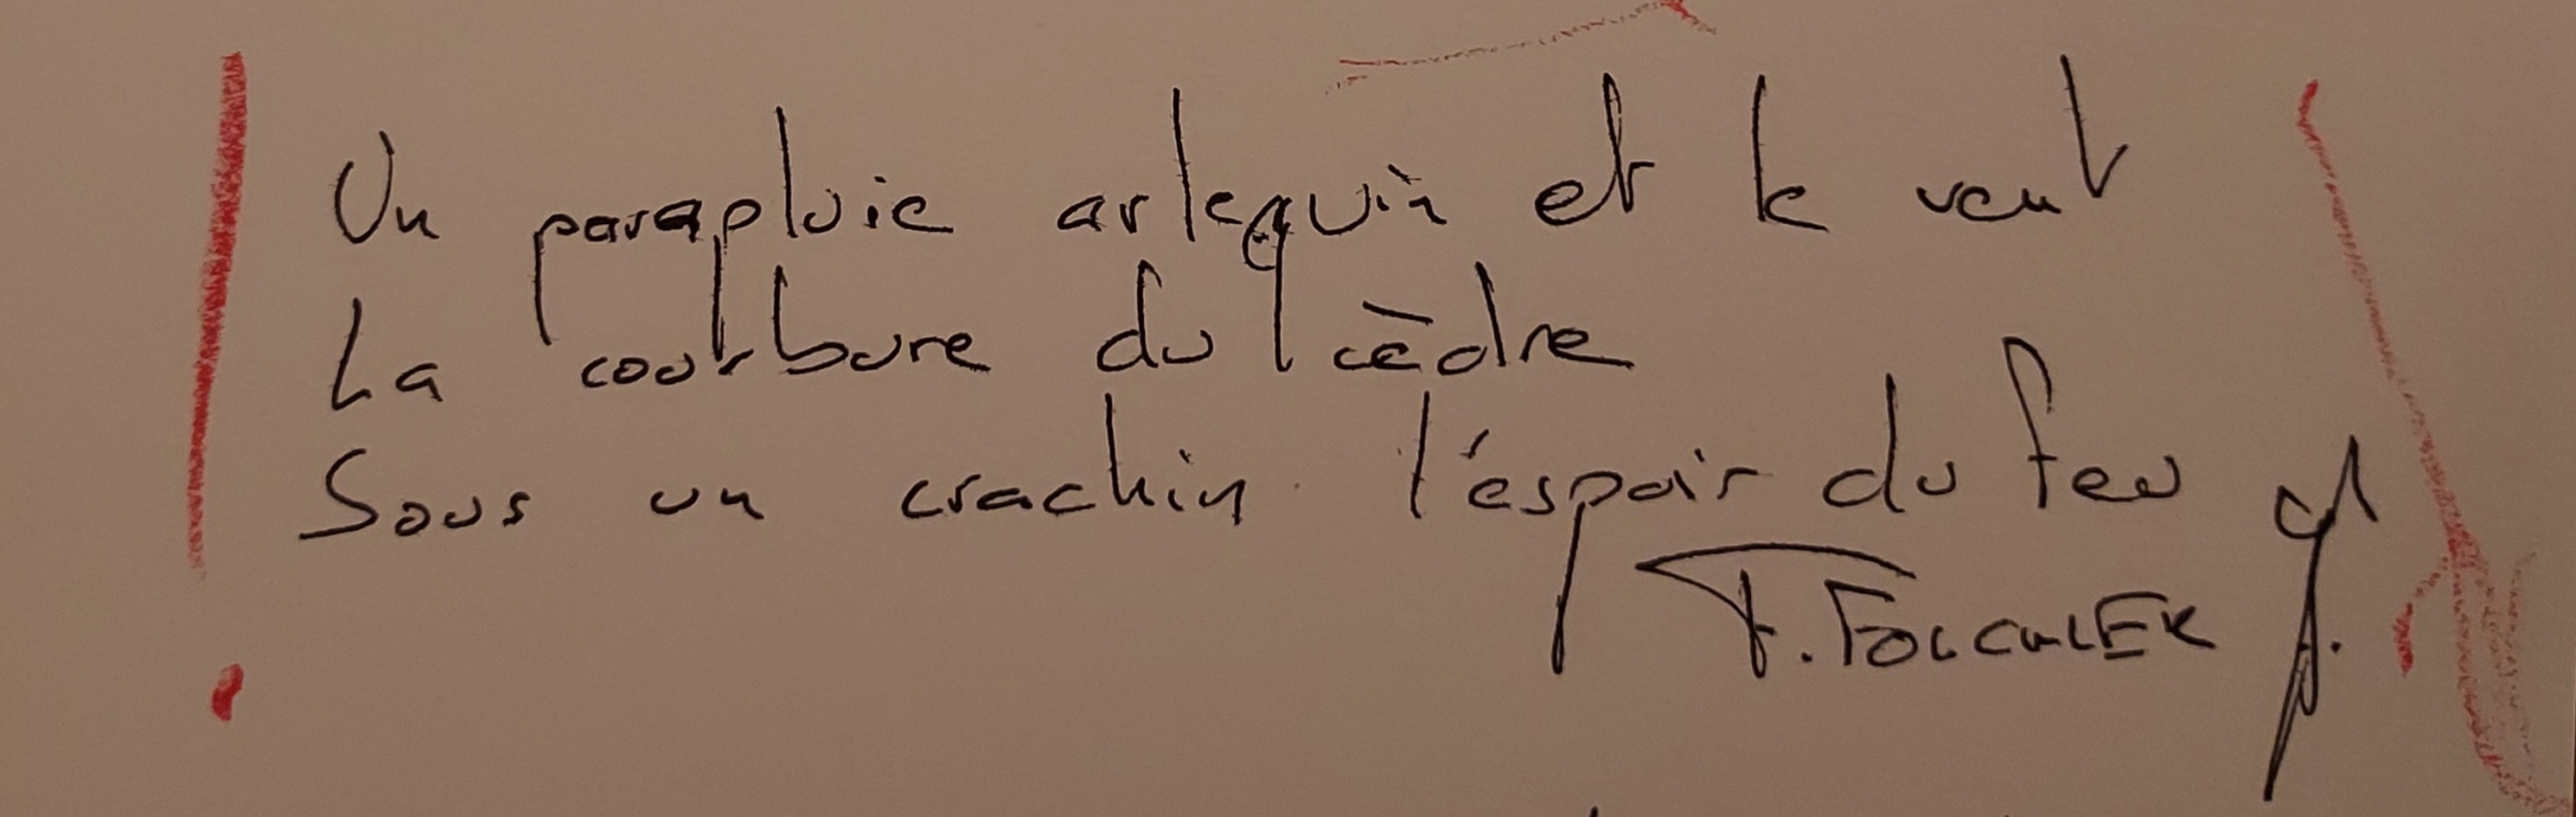 Un parapluie arlequin et le vent
La courbure du cèdre
Sous un crachin l'espoir du feu